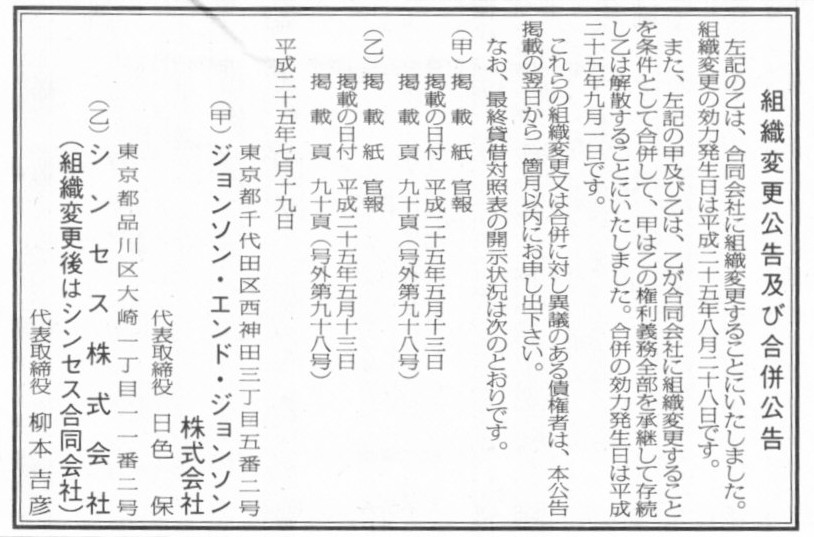 組織変更公告及び合併公告
左記の乙は、合同会社に組織変更することにいたしました。
組織変更の効力発生日は平成二十五年八月二十八日です。
また、左記の甲及び乙は、乙が合同会社に組織変更すること
を条件として合併して、甲は乙の権利義務全部を承継して存続
し乙は解散することにいたしました。合併の効力発生日は平成
二十五年九月一日です。
これらの組織変更又は合併に対し異議のある債権者は、本公告
掲載の翌日から一箇月以内にお申し出下さい。
なお、最終貸借対照表の開示状況は次のとおりです。
(甲)掲載紙 官報
掲載の日付 平成二十五年五月十三日
掲載頁 九十頁(号外第九十八号)
(乙)掲載紙 官報
掲載の日付 平成二十五年五月十三日
掲載頁 九十頁(号外第九十八号)
平成二十五年七月十九日
東京都千代田区西神田三丁目五番二号
(甲)ジョンソン・エンド・ジョンソン
株式会社
代表取締役 日色 保
東京都品川区大崎一丁目一一番二号
(乙)シンセス株式会社
(組織変更後はシンセス合同会社)
代表取締役 柳本 吉彦